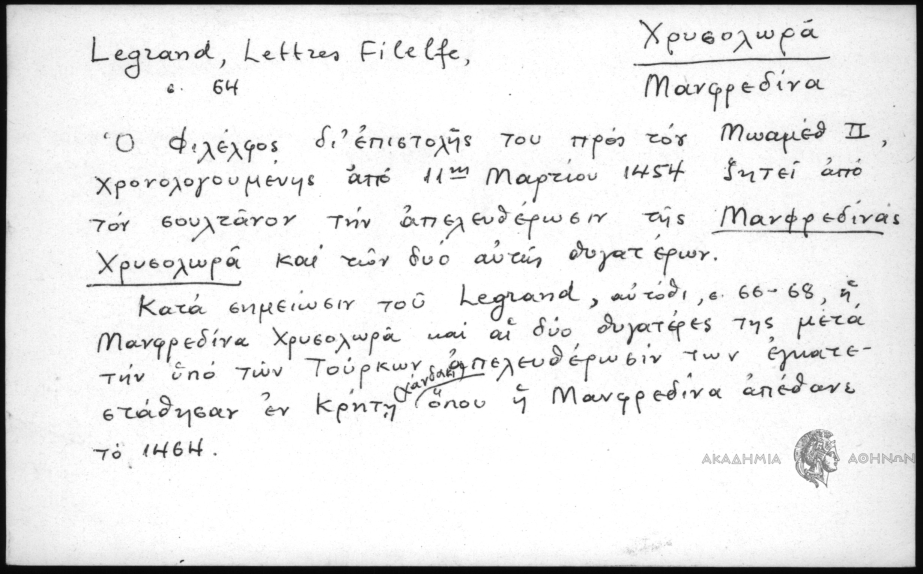 Legrand, Lettres Filelfe,
σ. 64
Χρυσολωρᾶ
Μανφρεδίνα
Ὁ Φιλέλφος δι' ἐπιστολῆς του πρός τόν Μωαμέθ II,
χρονολογουμένης ἀπό 11ης Μαρτίου 1454 ζητεῖ ἀπό
τόν σουλτᾶνον τήν ἀπελευθέρωσιν τῆς Μανφρεδίνας
Χρυσολωρᾶ καί τῶν δύο αὐτῆς θυγατέρων.
Κατά σημείωσιν τοῦ Legrand, αὐτόθι, σ. 66-68, ἡ
Μανφρεδίνα Χρυσολωρᾶ καί αἱ δύο θυγατέρες της μετά
τήν ὑπό τῶν Τούρκων ἀπελευθέρωσίν των ἐγκατε-
στάθησαν ἐν Κρήτῃ (Χάνδακι) ὅπου ἡ Μανφρεδίνα ἀπέθανε
τό 1464.
ΑΚΑΔΗΜΙΑ ΑΘΗΝΩΝ